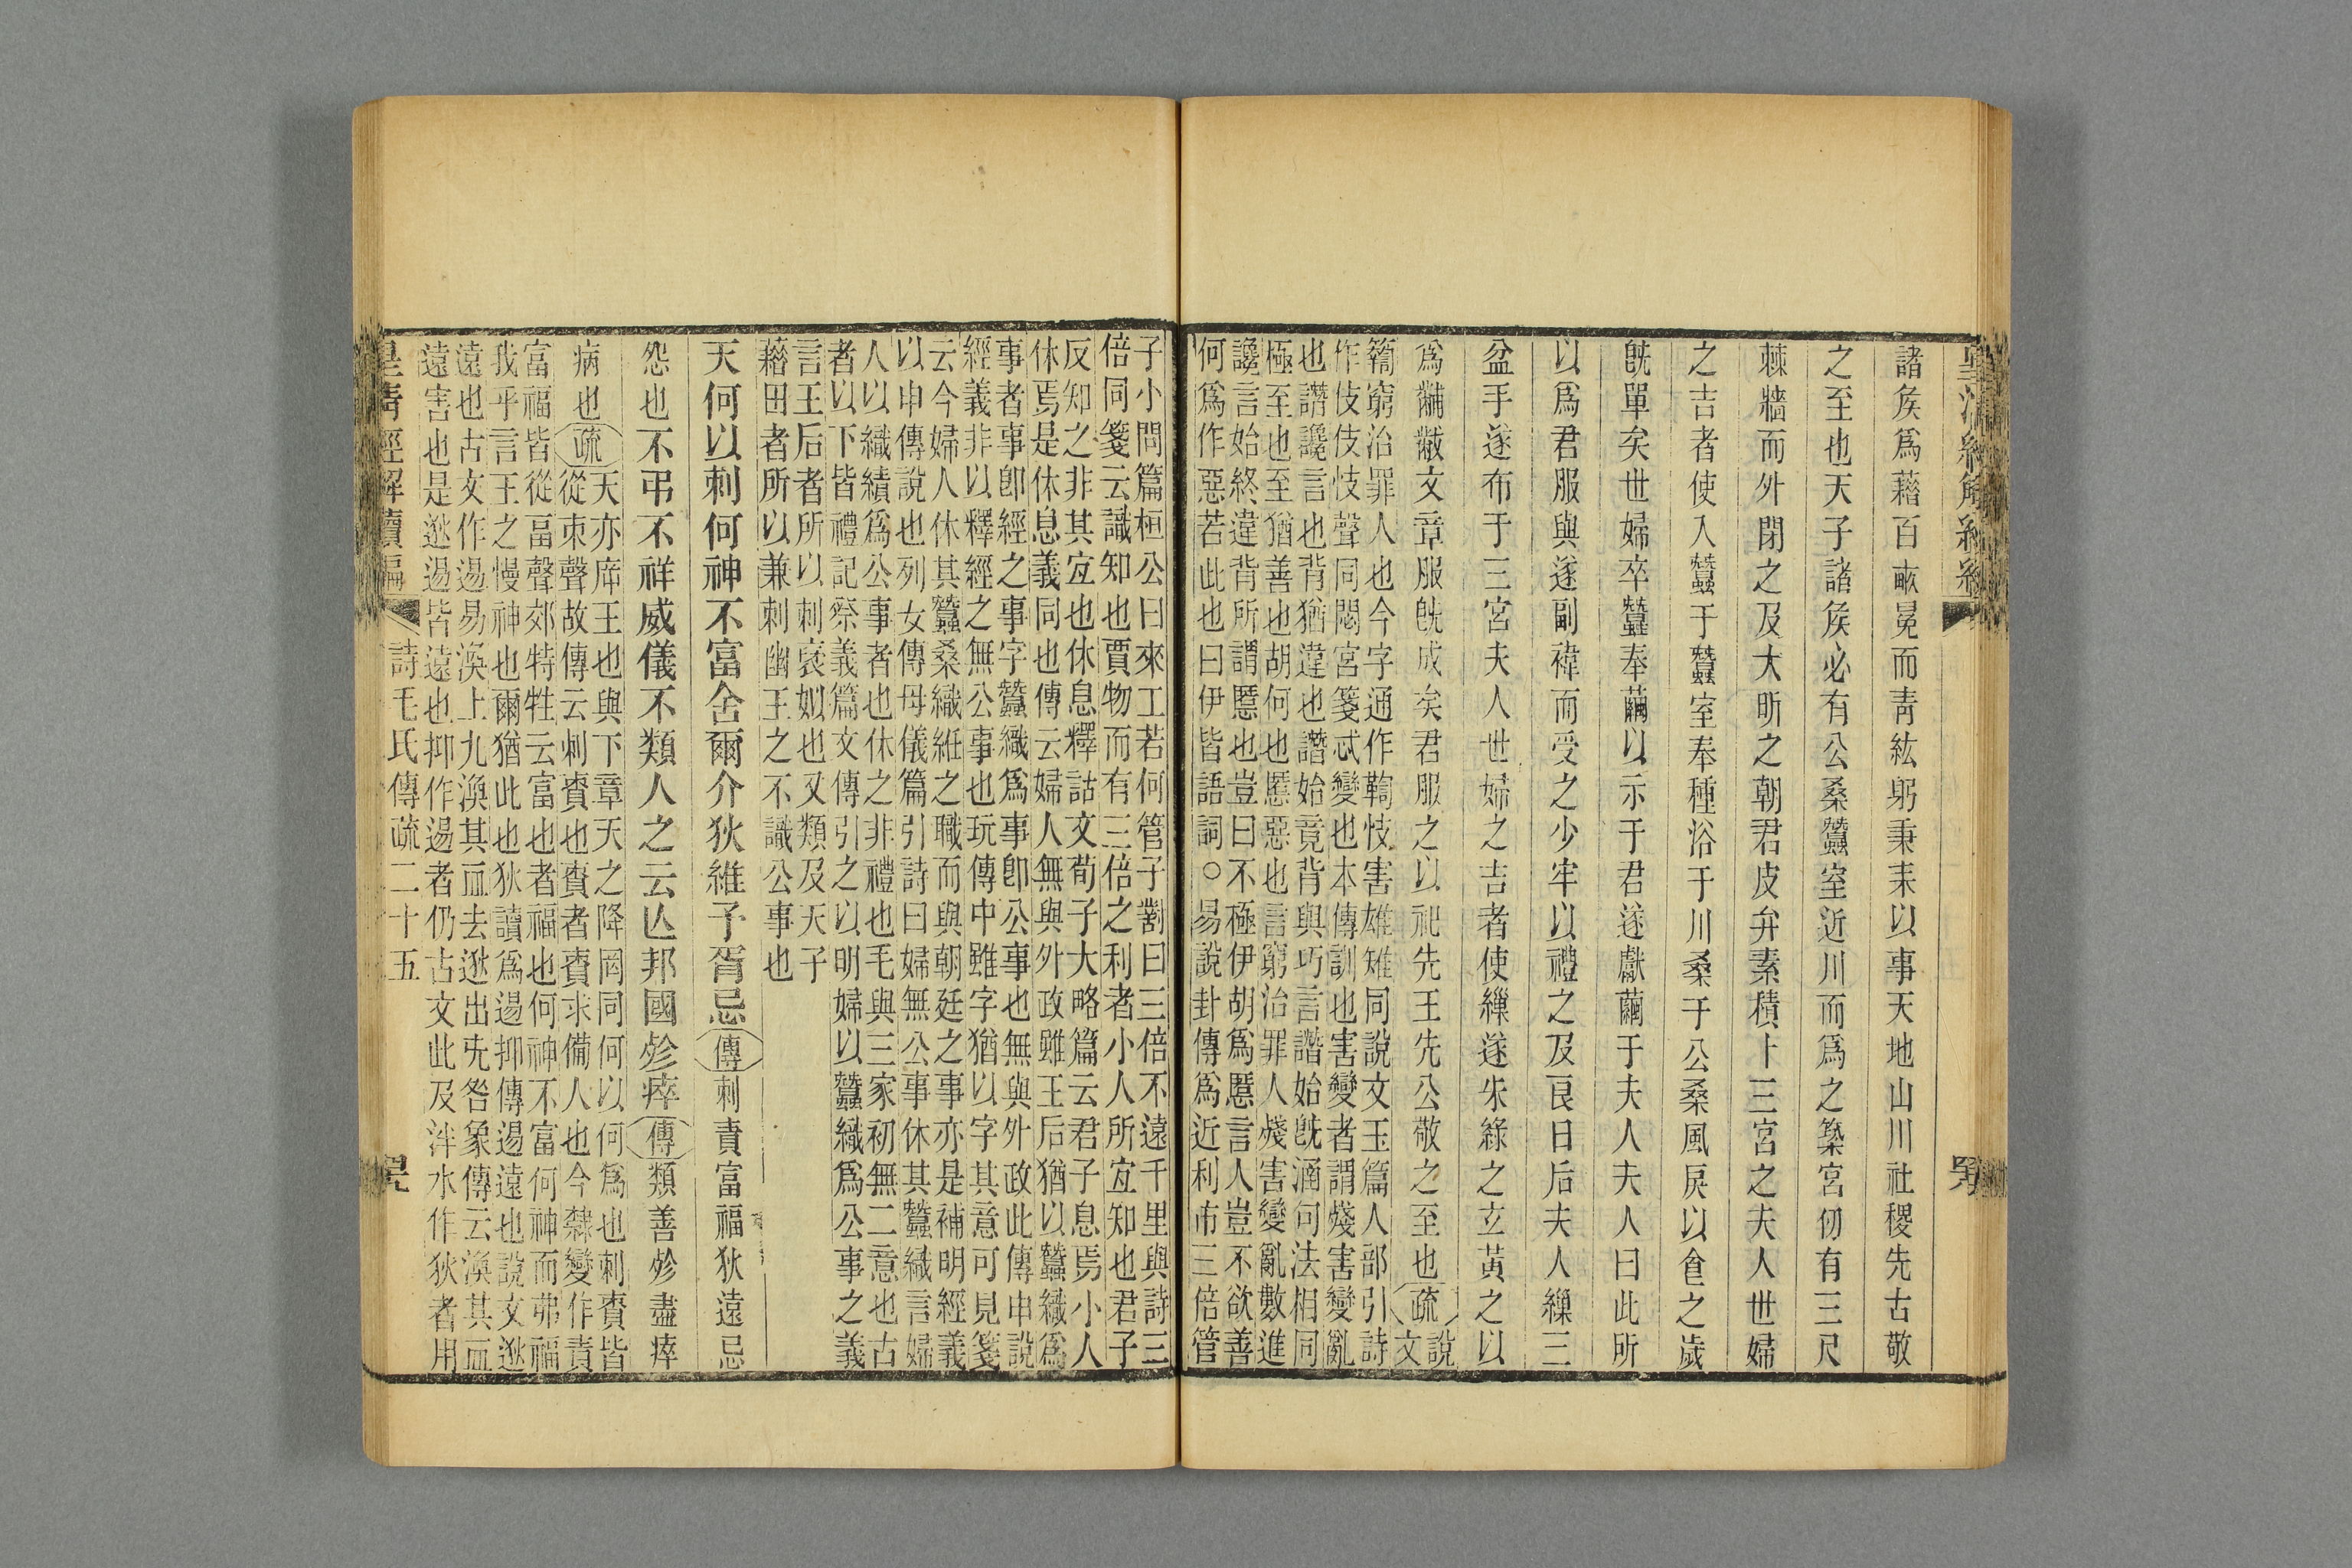 諸矦爲藉百畞冕而靑紘躬秉耒以事天地山川社稷先古敬
之至也天子諸矦必有公桑蠶室近川而爲之築宮仞有三尺
棘牆而外閉之及大昕之朝君皮弁素積卜三宮之夫人世婦
之吉者使入蠶于蠶室奉種浴于川桑于公桑風戾以食之歲
旣單矣世婦卒蠶奉繭以示于君遂獻繭于夫人夫人曰此所
以爲君服與遂副褘而受之少牢以禮之及良日后夫人繅三
盆手遂布于三宮夫人世婦之吉者使繅遂朱綠之玄黃之以
爲黼黻文章服旣成矣君服之以祀先王先公敬之至也疏說文
籀窮治罪人也今字通作鞫忮害雄雉同說文玉篇人部引詩
作伎伎忮聲同閟宮箋忒變也本傳訓也害變者謂殘害變亂
也譖讒言也背猶違也譖始竟背與巧言譖始旣涵句法相同
極至也至猶善也胡何也慝惡也言窮治罪人殘害變亂數進
讒言始終違背所謂慝也豈曰不極伊胡爲慝言人豈不欲善
何爲作惡若此也曰伊皆語詞○易說卦傳爲近利市三倍管
子小問篇桓公曰來工若何管子對曰三倍不遠千里與詩三
倍同箋云識知也賈物而有三倍之利者小人所宐知也君子
反知之非其宐也休息釋詁文荀子大略篇云君子息焉小人
休焉是休息義同也傳云婦人無與外政雖王后猶以蠶織爲
事者事卽經之事字蠶織爲事卽公事也無與外政此傳申說
經義非以釋經之無公事也玩傳中雖字猶以字其意可見箋
云今婦人休其蠶桑織絍之職而與朝廷之事亦是補明經義
以申傳說也列女傳母儀篇引詩曰婦無公事休其蠶織言婦
人以織績爲公事者也休之非禮也毛與三家初無二意也古
者以下皆禮記祭義篇文傳引之以明婦以蠶織爲公事之義
言王后者所以刺襃姒也又類及天子
藉田者所以兼刺幽王之不識公事也
天何以刺何神不富舍爾介狄維予胥忌傳刺責富福狄遠忌
怨也不弔不祥威儀不類人之云亾邦國殄瘁傳類善殄盡瘁
病也疏天亦席王也與下章天之降罔同何以何爲也刺賚皆
從朿聲故傳云刺賚也賚者賚求備人也今隸變作責
富福皆從畐聲郊特牲云富也者福也何神不富何神而弗福
我乎言王之慢神也爾猶此也狄讀爲逷抑傳逷遠也說文逖
遠也古文作逷易渙上九渙其血去逖出旡咎象傳云渙其血
遠害也是逖逷皆遠也抑作逷者仍古文此及泮水作狄者用
皇清經解續編 詩毛氏傳疏二十五